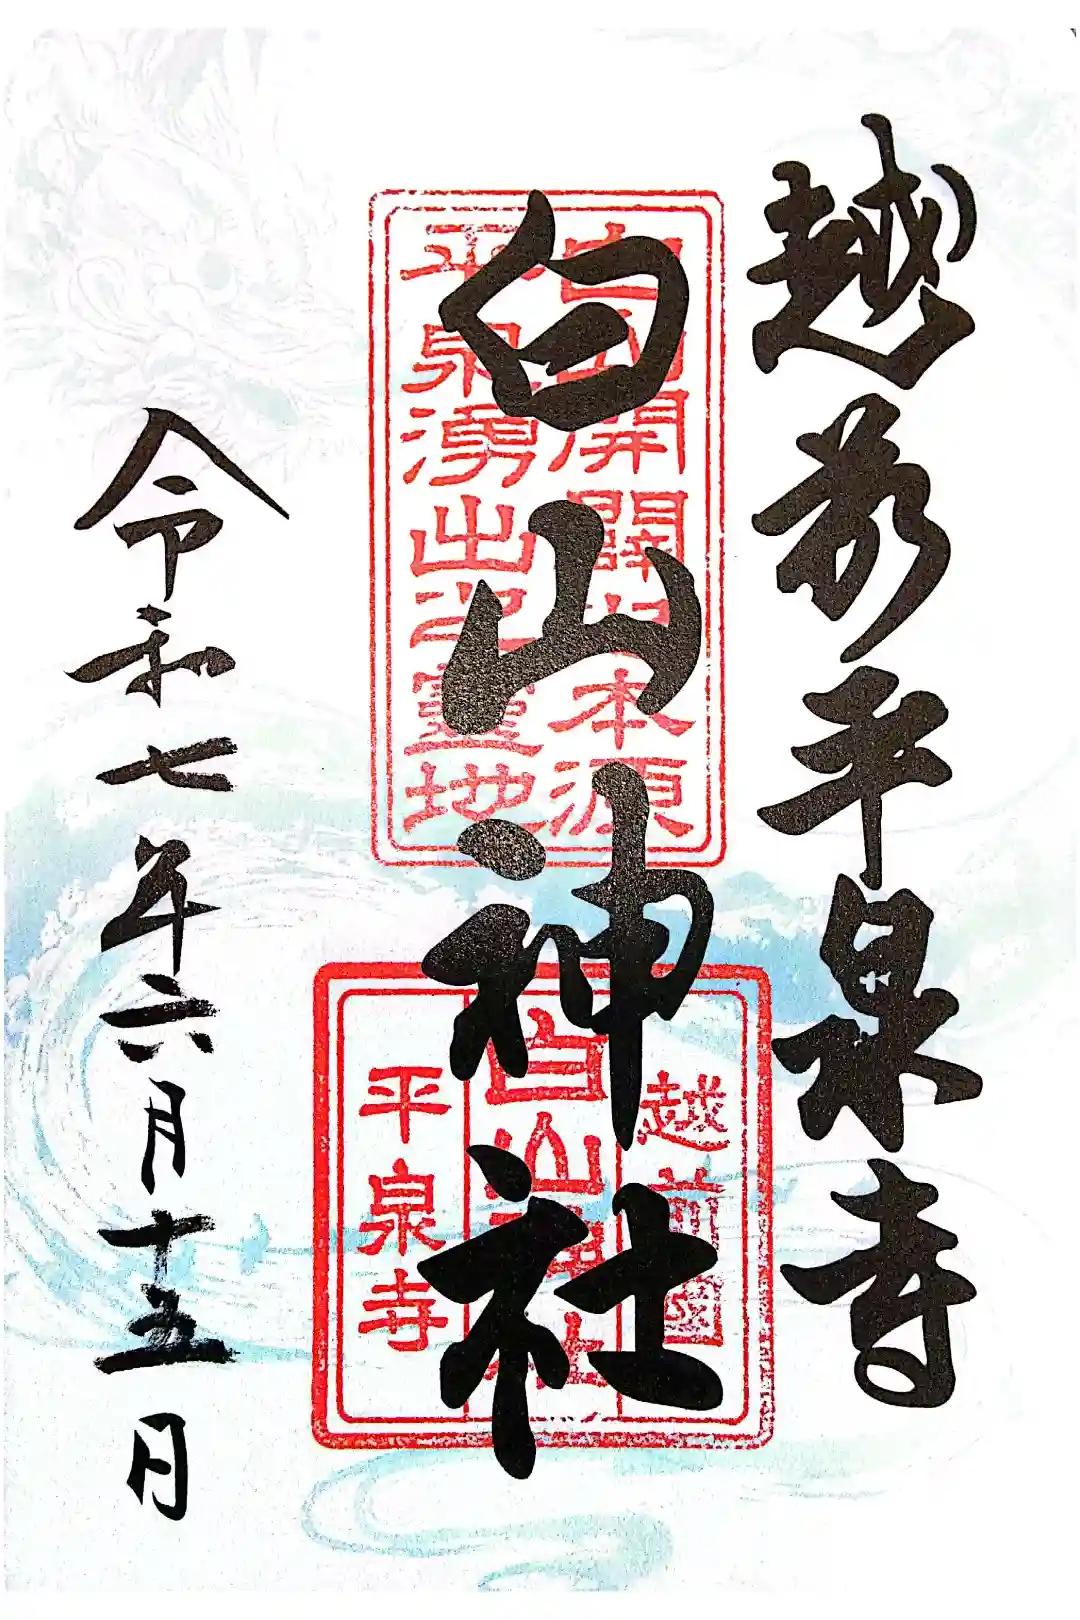 越前平泉寺
白山神社
令和七年六月十五日
白山開闢之本源
平泉湧出之靈地
越前國
白山神社
平泉寺